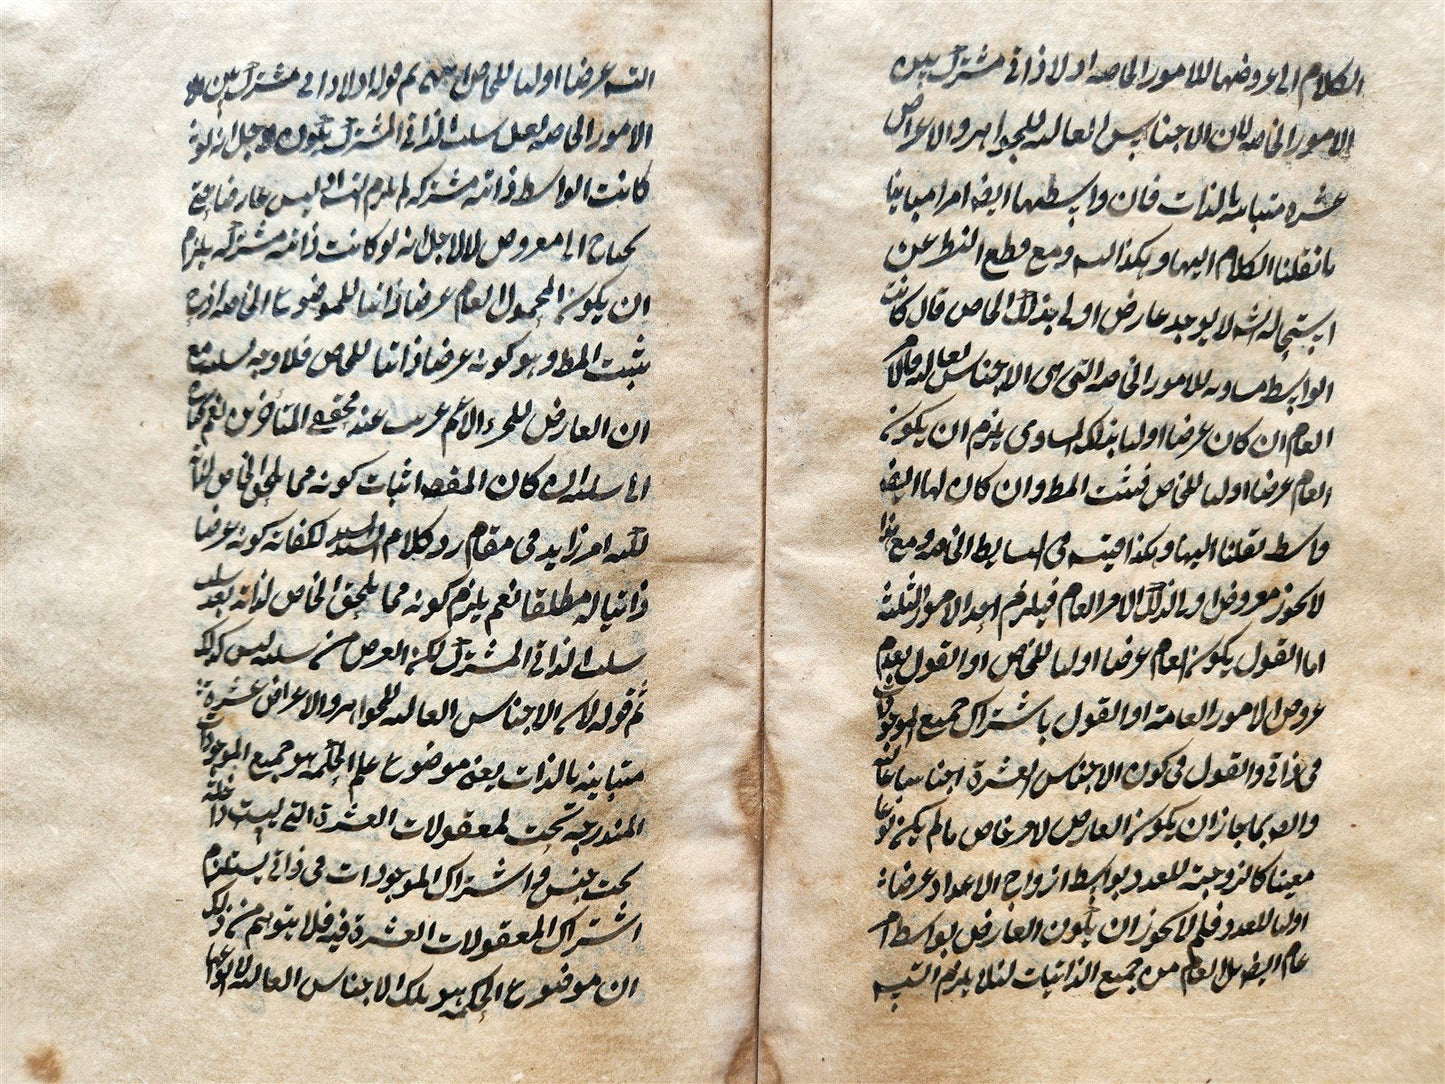 الكلام الى عروضها للامور الخاصه اولا ذاتى مشترك بين
الامور الخاصه لان الاجناس العاليه للجواهر والاعراض
عشره متباينه بالذات فان واسطتها ايضا امرا مباينا
نقلنا الكلام اليها وهكذا ومع قطع النظر عن
استحاله لا يوجد عارض اولى بذلك الخاص قال كانت
الواسطه مساويه للامور الخاصه التى هى الاجناس العاليه فالامر
العام ان كان عرضا اوليا بذلك المساوى يلزم ان يكون
العام عرضا اوليا للخاص فيثبت المط وان كان لها ايضا
واسطه نقلنا اليها وهكذا فى الوسايط الخاصه ومع هذا
لا يجوز معروض اولى لذلك الامر العام فيلزم احد الامور الثلثة
اما القول يكون العام عرضا اوليا للخاص او القول بعدم
عروض الامور العامة او القول باشتراك جميع الموجودات
فى ذاتى والقول فى كون الاجناس العشرة اجناسا عاليه
وايضا جاز ان يكون العارض لامر خاص ما لم يكن نوعا
معينا كالزوجية للعدد بواسطه ازواج الاعداد عرضا
اوليا للعدد فلم لا يجوز ان يكون العارض بواسطه امر
عام ايضا العام من جميع الذاتيات لئلا يلزم
عرضا اوليا للخاص ثم قوله اولا ذاتى مشترك بين
الامور الخاصه لعل سلب الذاتى المشترك يكون لاجل انه لو
كانت الواسطه ذاته مشتركه لم يلزم ليس عارضا حتى
يحتاج الى معروض لا لاجل انه لو كانت ذاته مشتركه يلزم
ان يكون المحمول العام عرضا ذاتيا للموضوع الخاص
يثبت المط وهو كونه عرضا ذاتيا للخاص فلا وجه لسلبه مع
ان العارض للجزء الاعم غريب عند محققى المتاخرين نعم يحتاج
الى سلبه ان كان المقصد اثبات كونه مما يلحق الخاص لذاته
لكنه امر زايد فى مقام رد كلام السيد لكفاية كونه عرضا
ذاتيا له مطلقا نعم يلزم كونه مما يلحق الخاص لذاته بعد سلب
سلب الذاتى المشترك لكن الغرض من سلبه ليس كذلك
ثم قوله لان الاجناس العاليه للجواهر والاعراض عشرة
متباينه بالذات يعنى موضوع علم الحكمه هو جميع الموجودات
المندرجه تحت المعقولات العشرة التى ليست داخلة
تحت جنس واشتراك الموجودات فى ذاتى يستلزم
اشتراك المعقولات العشرة فيه فلا يتوهم من ذلك
ان موضوع الحكمه هو تلك الاجناس العاليه لا انواعها